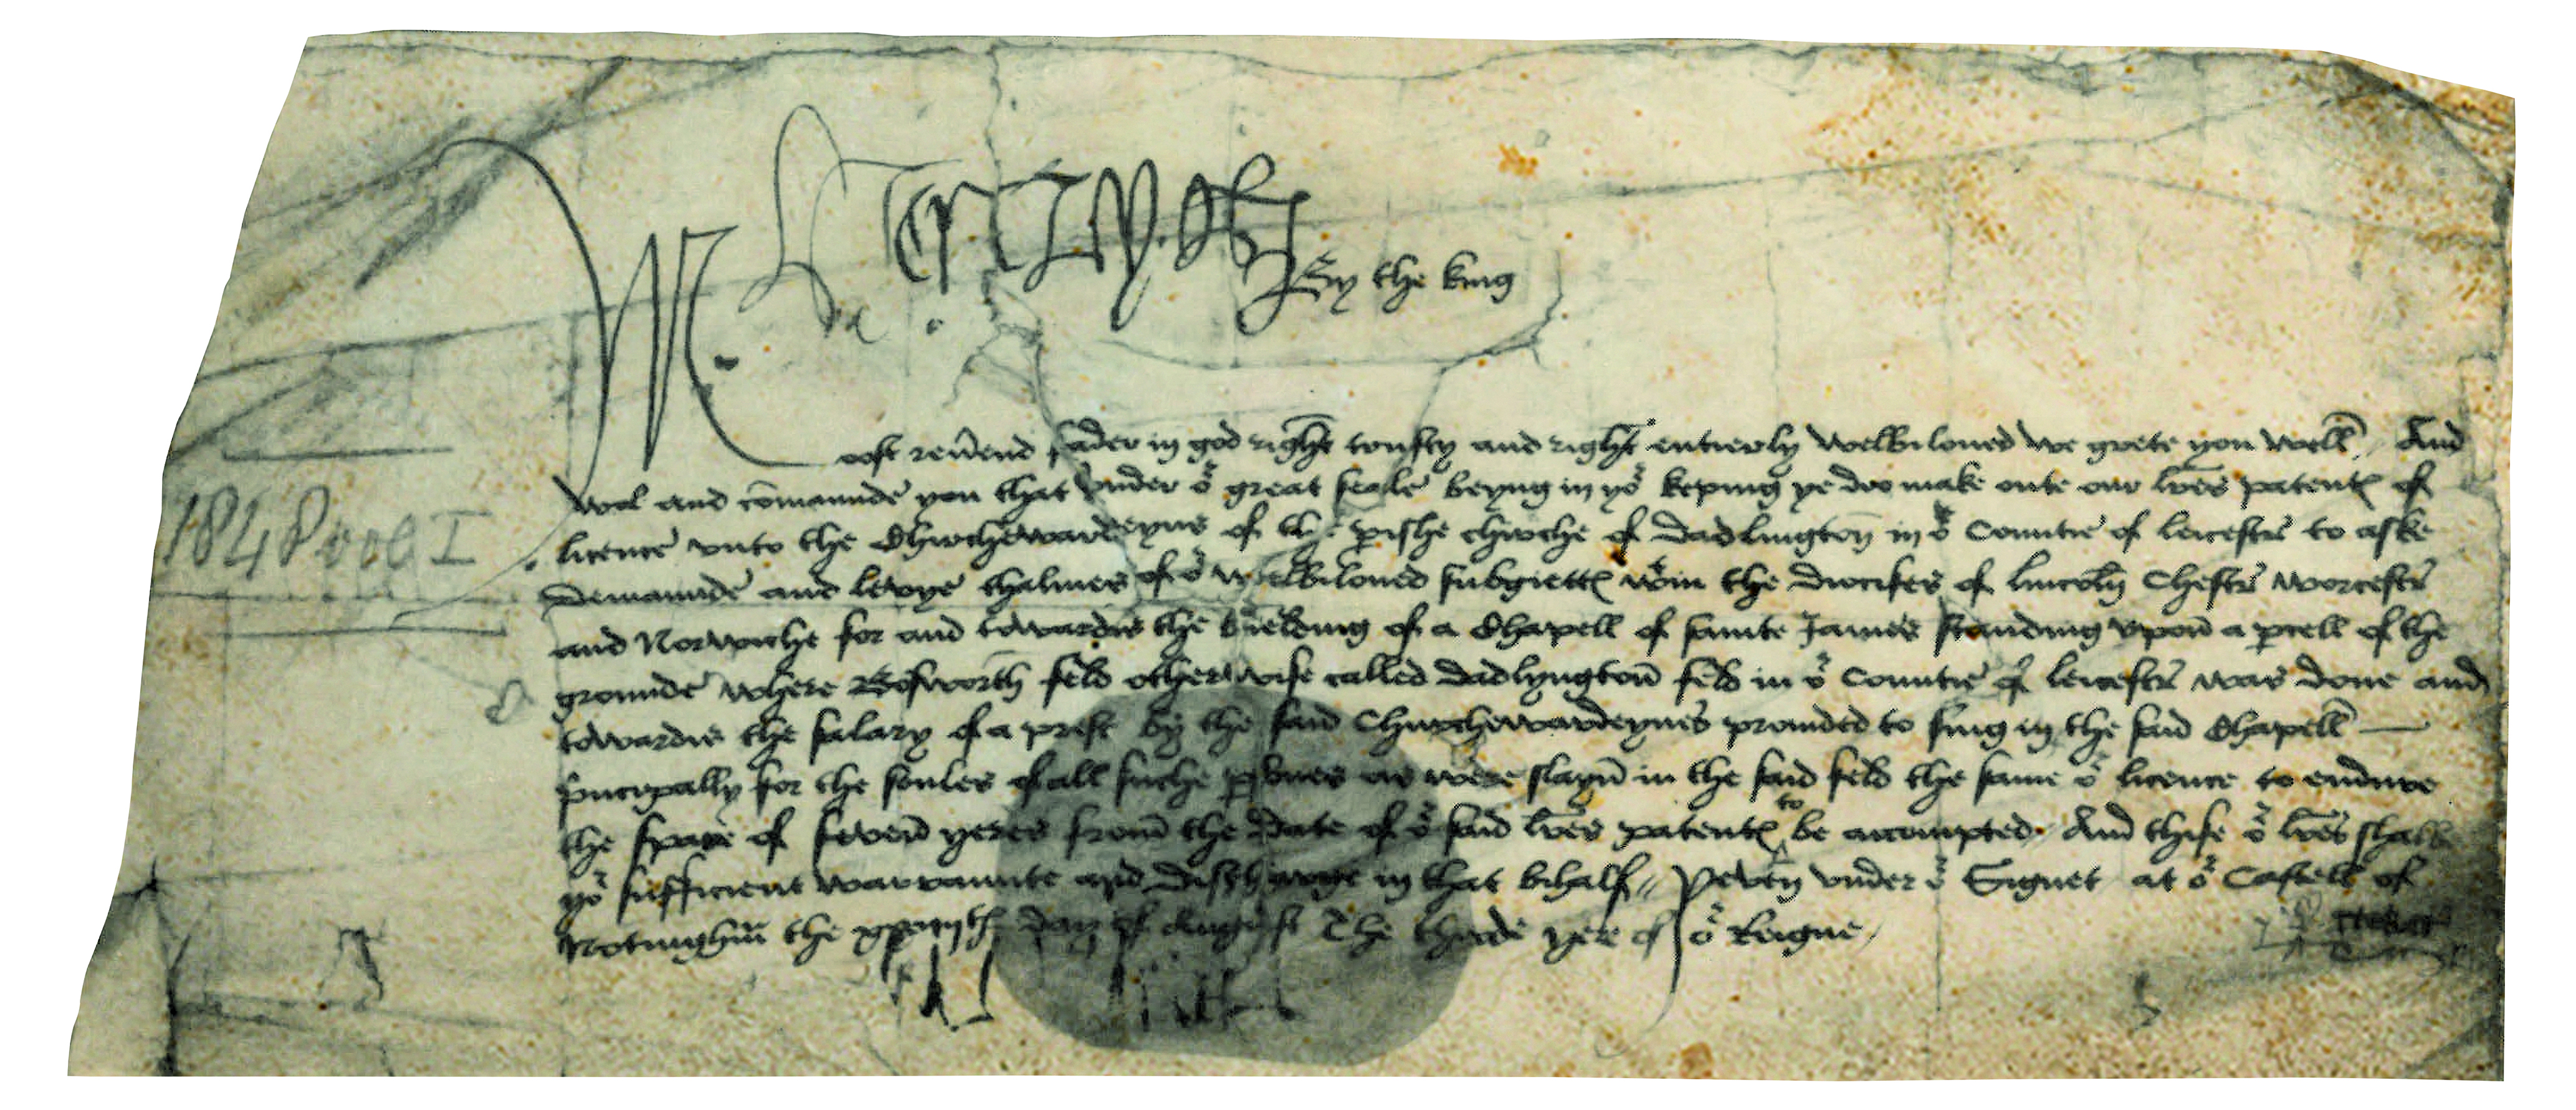 Henry R
By the king
Moost reu'end fader in god right trusty and right entierly welbiloued we grete you well And
wol and co'maunde you that vnder oʳ great seale beyng in yoʳ keping ye doo make oute our l'res patent' of
licence vnto the Chirchewardeyns of the p'ishe chirche of Dadlington in oʳ Countie of leicestr' to aske
Demaunde and levye thalmes of oʳ welbiloued subgiett' wᵗin the diocises of lincoln Chestr' worcestr'
and Norwiche for and towardes the bielding of a Chapell of sainte James standing vpon a p'cell of the
grounde where Bosworth feld otherwise called Dadlyngton feld in oʳ Countie of leicestr' was done and
towardes the salary of a prest by the said Churchewardeynes prouided to sing in the said Chapell
p'ncipally for the soules of all suche p'sones as were slayn in the said feld the same oʳ licence to endure
the space of seven yeres from the date of oʳ said l'res patent' to be accompted And thise oʳ l'res shall
yoʳ sufficient warraunte and discharge in that bihalf Yeven vnder oʳ Signet at oʳ Castell of
Notingh'm the day of August The thride yere of oʳ Reigne